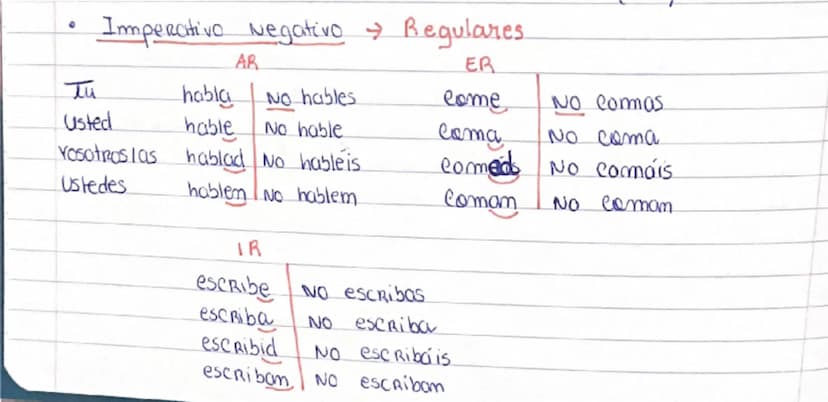 • Imperativo Negativo → Regulares
AR ER
Tú habla NO hables come NO comas
Usted hable No hable coma NO coma
Vosotros/as hablad No habléis comed NO comáis
Ustedes hablem No hablem comam No comam
IR
escribe NO escribas
escriba NO escriba
escribid NO escribáis
escribam NO escribam